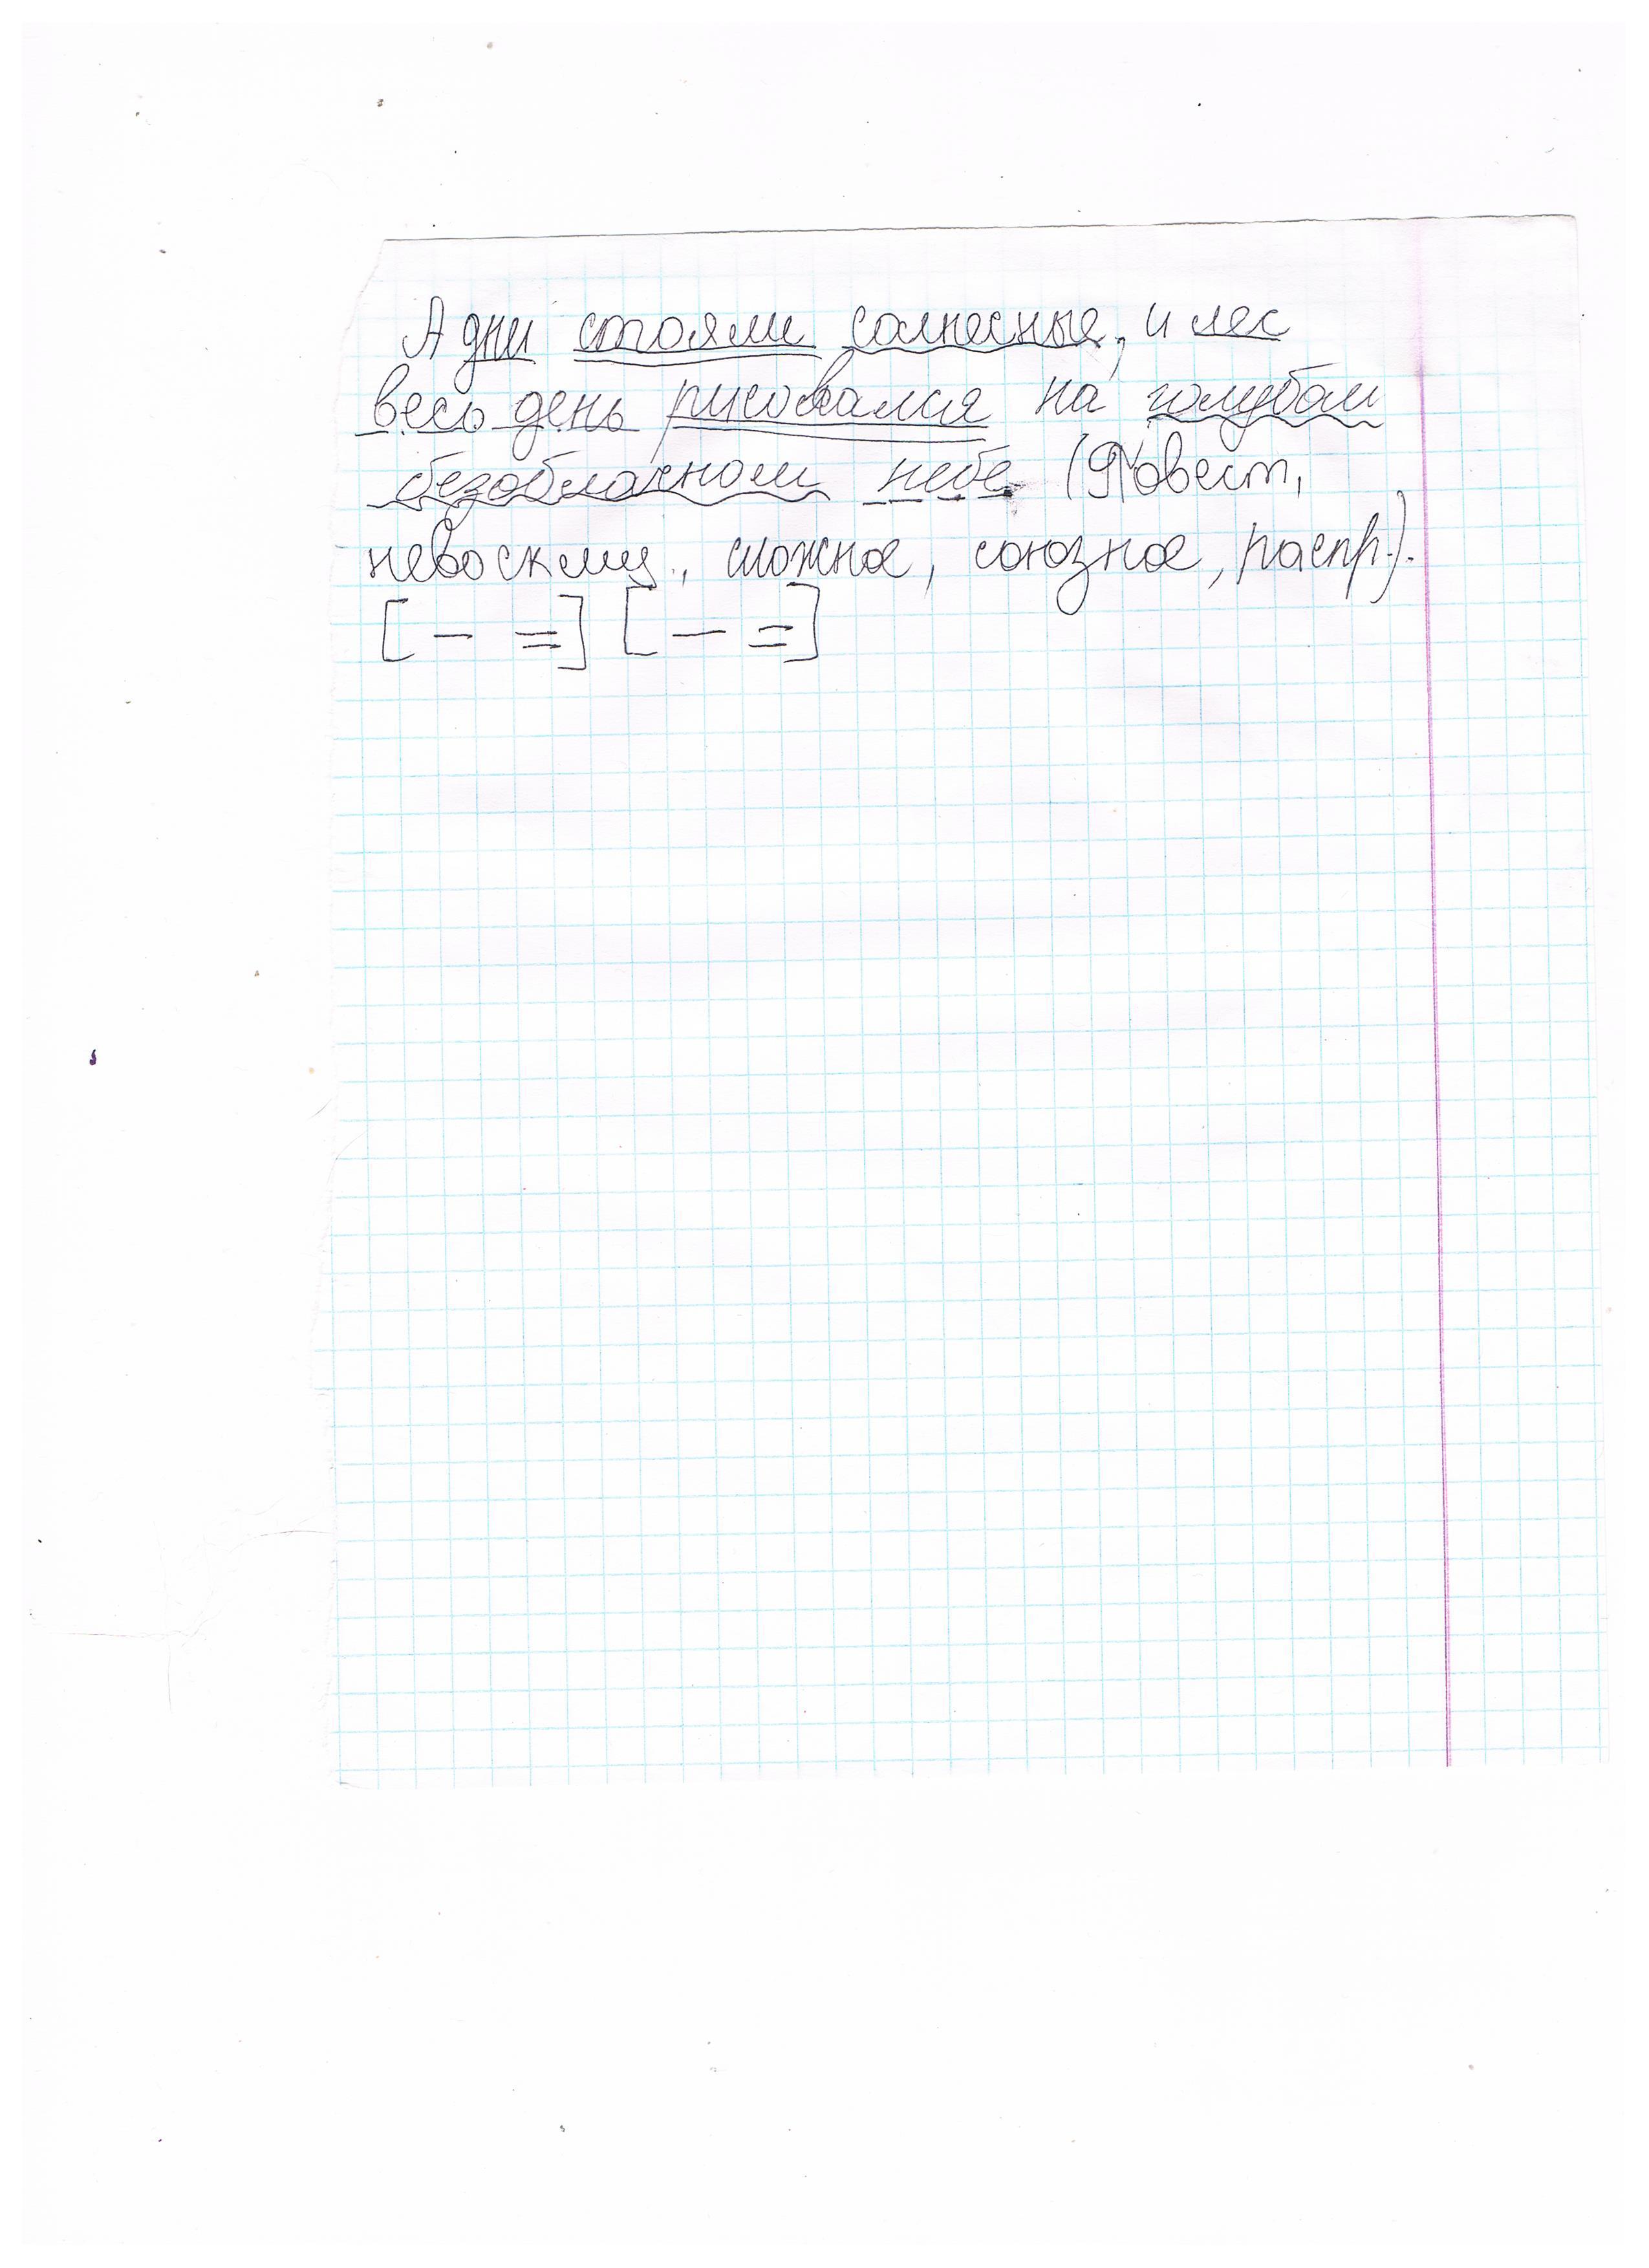 А дни стояли солнечные, и лес
весь день рисовался на голубом
безоблачном небе. (Повест,
невосклиц., сложное, союзное, распр.).
[ – = ] [ – = ]